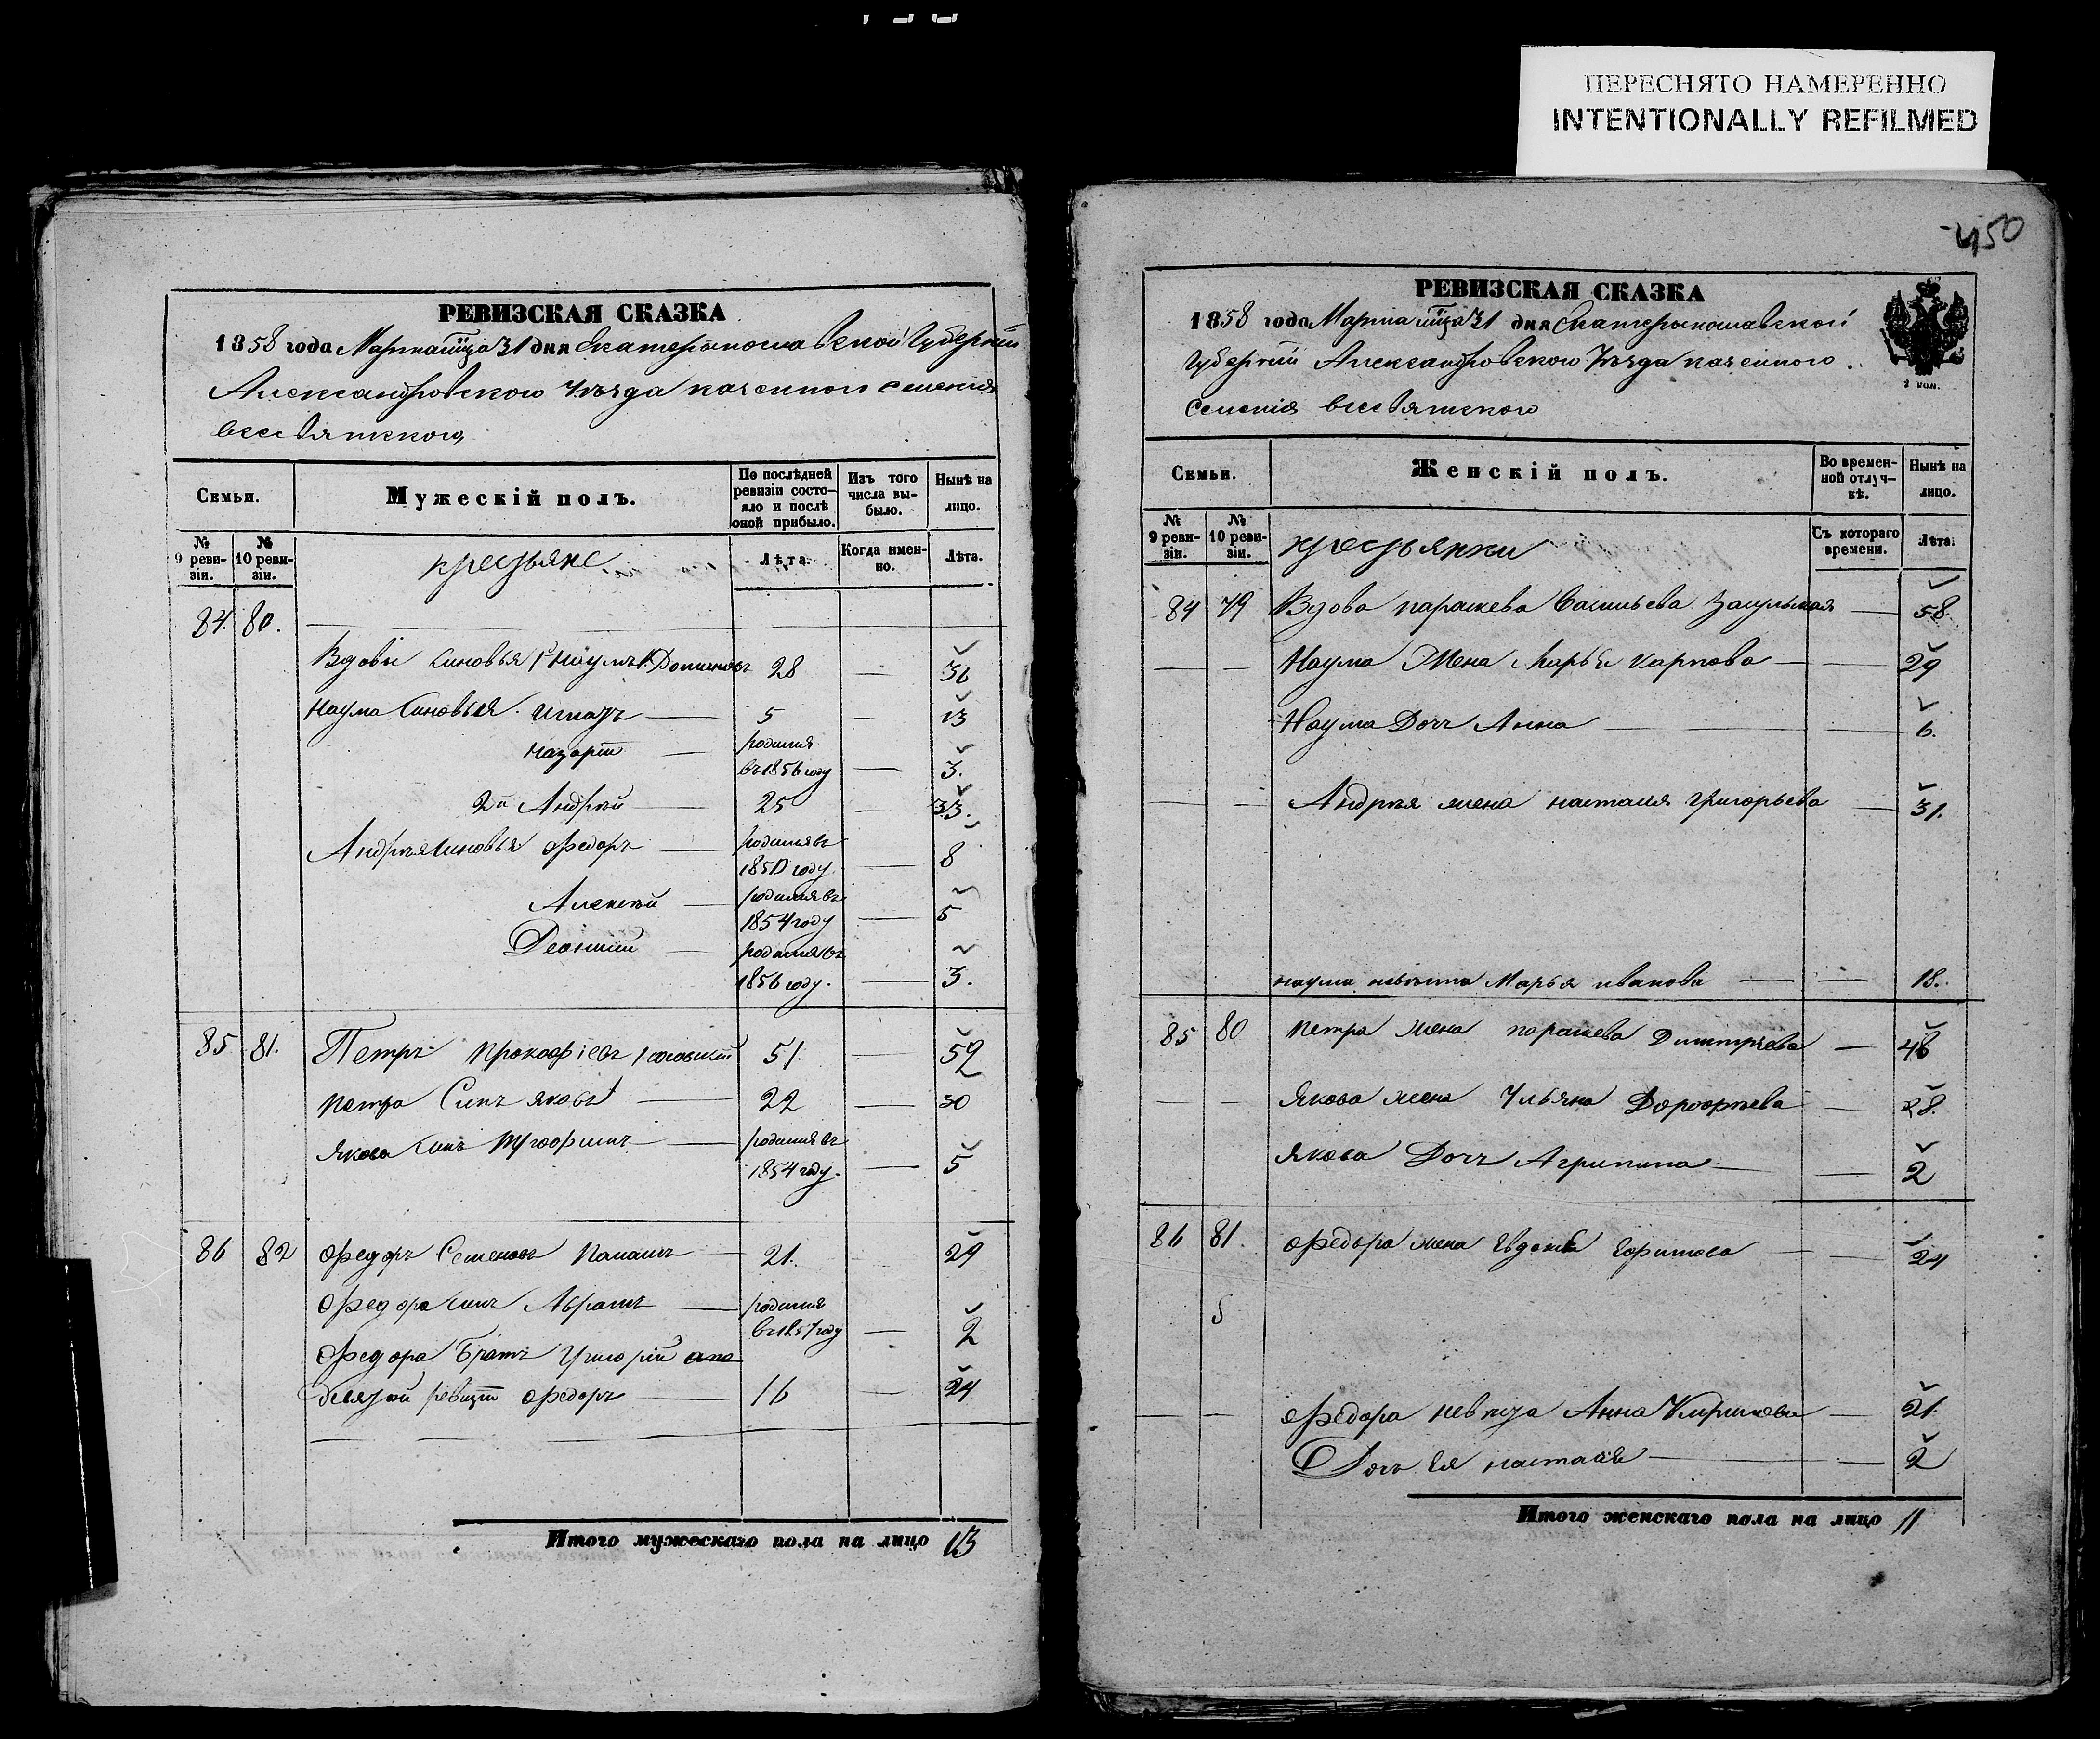 ПЕРЕСНЯТО НАМЕРЕННО
INTENTIONALLY REFILMED
450
РЕВИЗСКАЯ СКАЗКА
1858 года Марта м̃ца 31 дня Екатеринославской Губерніи
Александровского Уѣзда казенного селенія
всесвятского
Семьи.
Мужескій полъ.
По послѣдней ревизіи состо-
яло и послѣ оной прибыло.
Изъ того числа вы-
было.
Нынѣ на лицо.
№ 9 реви-
зіи.
№ 10 реви-
зіи.
крестьяне
Лѣта.
Когда имен-
но.
Лѣта.
84. 80.
Вдовы сыновья 1й Наумъ 28 36
Наума Сыновья Игнатъ 5 13
Назарій родился въ 1856 году 3.
2й Андрѣй 25 33.
Андрѣя сыновья Федоръ родился въ 1850 году 8
Алексѣй родился въ 1854 году 5
родился въ 1856 году. 3.
85 81. Петръ Прокофіевъ 51. 59
Петра Сынъ Яковъ 22 30
Якова Сынъ родился въ 1854 году. 5
86 82 Федоръ Семеновъ 21. 29
Федора сынъ Абрамъ родился въ 1857 году 2
Федора Братъ Григорій а по
девятой ревизіи Федоръ 16 24
Итого мужескаго пола на лицо 13
РЕВИЗСКАЯ СКАЗКА
1858 года Марта м̃ца 31 дня Екатеринославской
Губерніи Александровского Уѣзда казенного
Селенія всесвятского
2 коп.
Семьи.
Женскій полъ.
Во времен-
ной отлуч-
кѣ.
Нынѣ на лицо.
№ 9 реви-
зіи.
№ 10 реви-
зіи.
крестьянки
Съ котораго времени.
Лѣта.
84 79 Вдова параскева Васильева 58
Наума Жена Марья карпова 29
Наума Дочь Анна 6.
Андрѣя жена настасія григорьева 31.
наума невѣстка Марья иванова 18.
85 80 петра жена параскева Димитріева 48
Якова жена Ульяна Дорофѣева 28.
Якова Дочь Агрипина 2
86 81. Федора жена Евдокія Ефимова 24
Федора невѣстка Анна 21.
Дочь Ея настасія 2
Итого женскаго пола на лицо 11